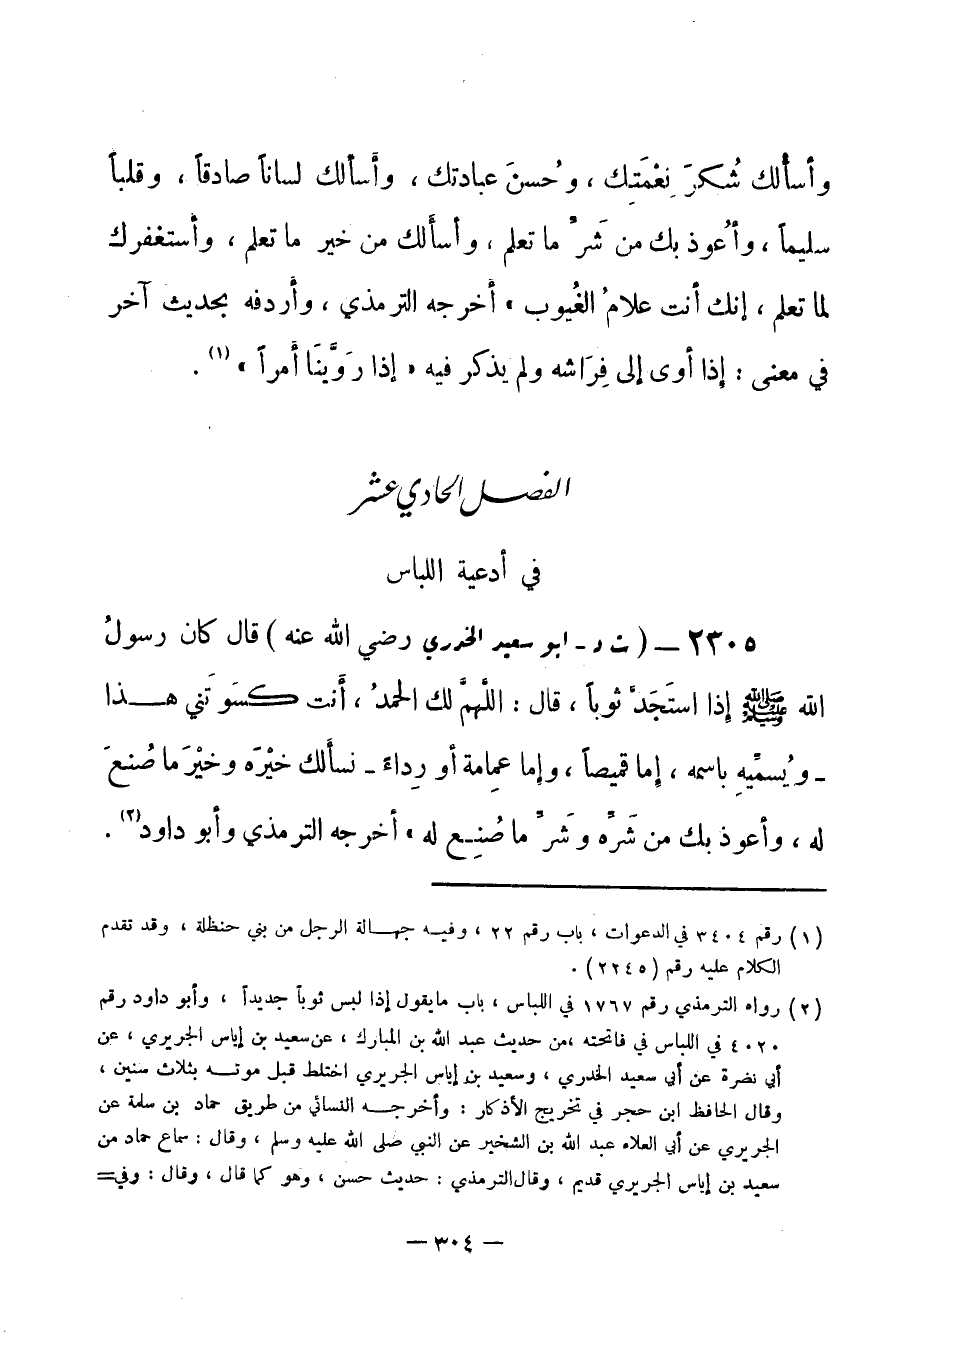 وأسألك شُكرَ نِعْمَتِك ، وحُسنَ عبادتك ، وأَسألك لساناً صادقاً ، وقلباً
سليماً ، وأُعوذ بك من شَرِّ ما تعلم ، وأسأَلك من خير ما تعلم ، وأَستغفرك
لما تعلم ، إنك أنت علامُ الغُيوب » أخرجه الترمذي ، وأردفه بحديث آخر
في معنى : إِذا أوى إلى فِرَاشه ولم يذكر فيه « إذا رَوَّينَا أَمراً » (١) .
الفصل الحادي عشر
في أدعية اللباس
٢٣٠٥ – ( ت د - ابو سعيد الخدري رضي الله عنه ) قال كان رسولُ
الله ﷺ إِذا استَجَدَّ ثوباً ، قال : اللَّهمَّ لك الحمدُ ، أَنت كسَوتَني هـذا
- ويُسمِّيهِ باسمه ، إِما قميصاً ، وإما عِمامة أو رِداءَ - نسأَلك خيْرَه وخيْرَ ما صُنعَ
له ، وأعوذ بك من شَرِّه وشَرِّ ما صُنِع له » أخرجه الترمذي وأبو داود(٢) .
(١) رقم ٣٤٠٤ في الدعوات ، باب رقم ٢٢ ، وفيه جهالة الرجل من بني حنظلة ، وقد تقدم
الكلام عليه رقم (٢٢٤٥) .
(٢) رواه الترمذي رقم ١٧٦٧ في اللباس ، باب مايقول إذا لبس ثوباً جديداً ، وأبو داود رقم
٤٠٢٠ في اللباس في فاتحته ،من حديث عبد الله بن المبارك ، عن سعيد بن إياس الجريري ، عن
أبي نضرة عن أبي سعيد الخدري ، وسعيد بن إياس الجريري اختلط قبل موته بثلاث سنين ،
وقال الحافظ ابن حجر في تخريج الأذكار : وأخرجه النسائي من طريق حماد بن سلمة عن
الجريري عن أبي العلاء عبد الله بن الشخير عن النبي صلى الله عليه وسلم ، وقال : سماع حماد من
سعيد بن إياس الجريري قديم ، وقال الترمذي : حديث حسن ، وهو كما قال ، وقال : وفي=
– ٣٠٤ –